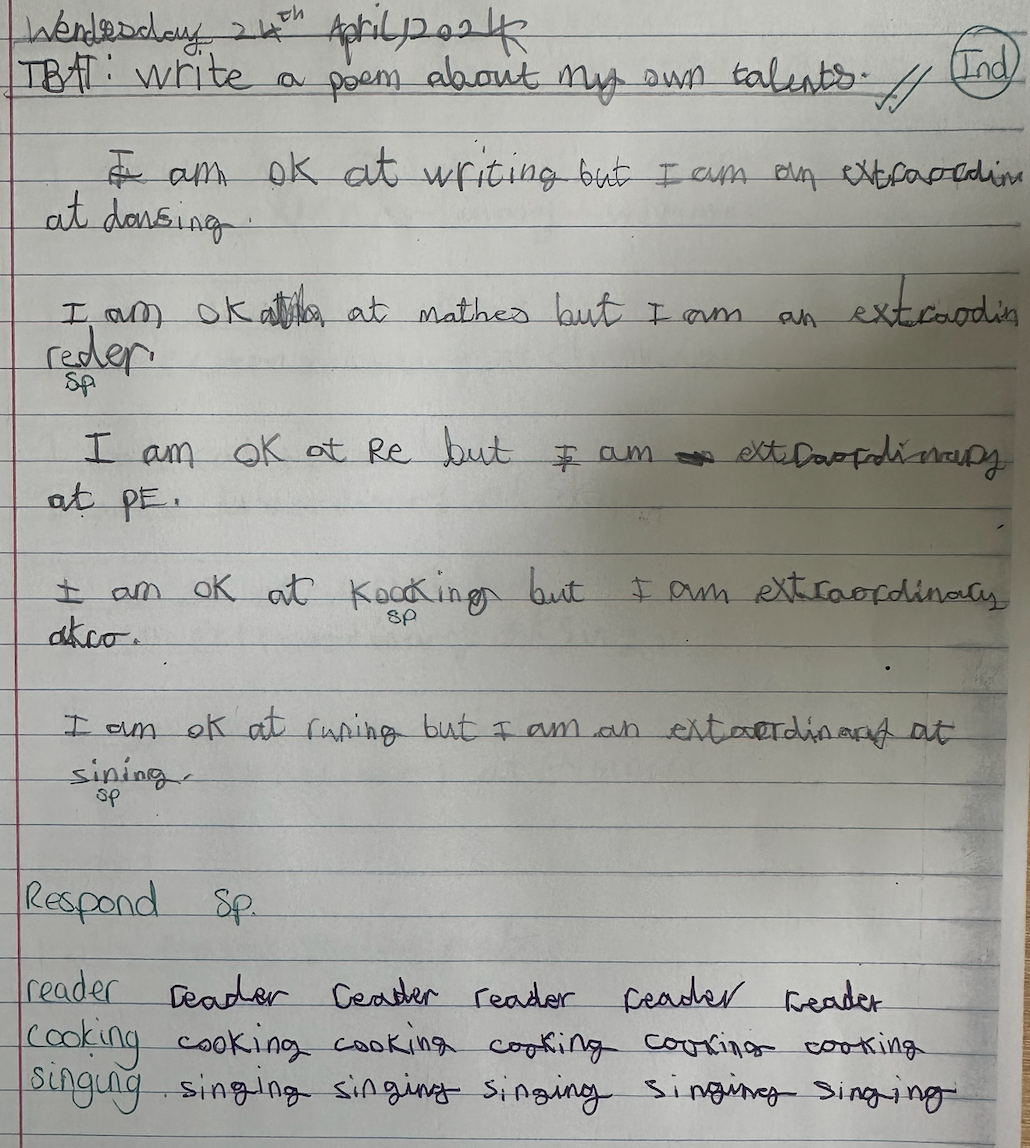 Wendesday 24th April, 2024
TBAT: write a poem about my own talents.
Ind
I am ok at writing but I am an extraordin
at dansing.
I am ok at mathes but I am an extraodin
reder.
Sp
I am ok at Re but I am extraordinary
at PE.
I am ok at kooking but I am extraordinary
sp
I am ok at runing but I am an extaordinary at
sining.
sp
Respond Sp.
reader reader reader reader reader reader
cooking cooking cooking cooking cooking cooking
singing singing singing singing singing singing